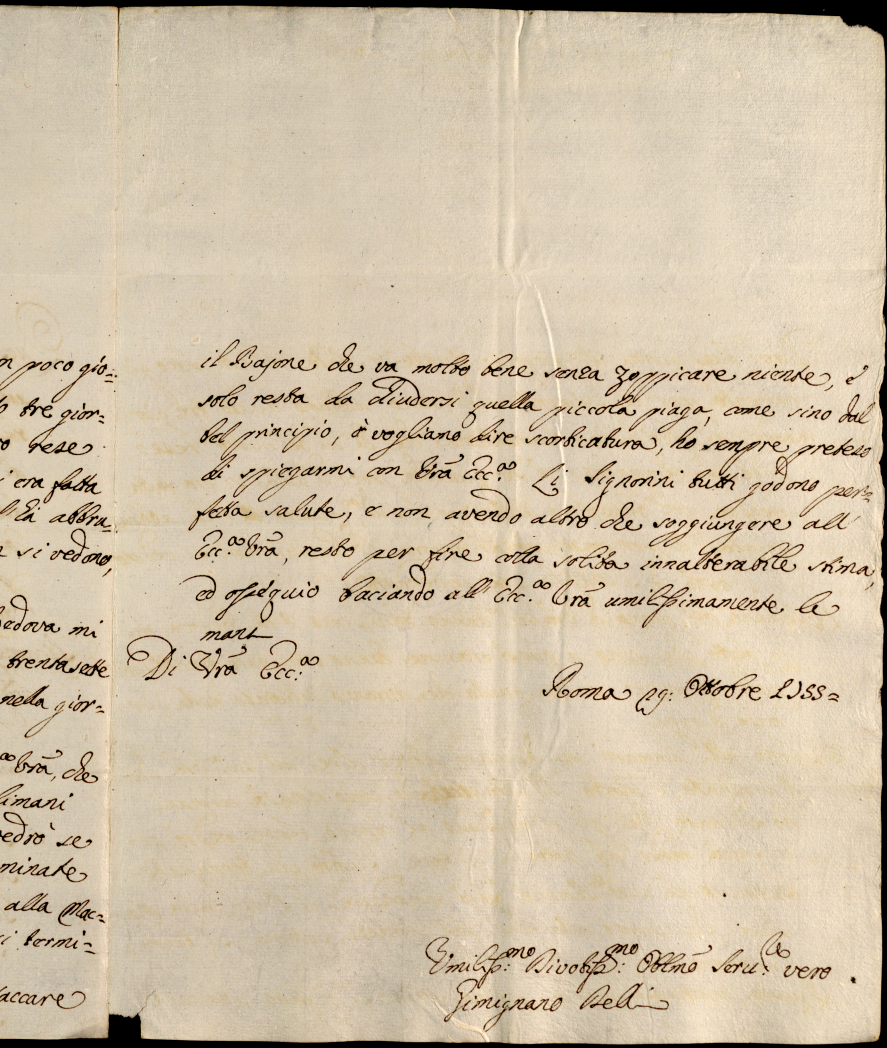 n poco gio=
o tre gior=
o rese
i era fatta
ll'Ea abbra=
n si vedono,
Padova mi
trentasette
nella gior=
ᵃ Vrã, che
limani
vedrò se
minate
alla Mac=
ci termi=
taccare
il Bajone che va molto bene senza zoppicare niente, è
solo resta da chiudersi quella piccola piaga, come sino dal
bel principio, ò vogliano dire scorticatura, ho sempre preteso
di spiegarmi con Vrã Ecc:ᵃ Li Signorini tutti godono per=
fetta salute, e non avendo altro che soggiungere all'
Ecc:ᵃ Vrã, resto per fine colla solita innalterabile stima,
ed ossequio baciando all' Ecc:ᵃ Vrã umilissimamente le
mani
Di Vrã Ecc:ᵃ
Roma 29: Ottobre 1755=
Umiliss:ᵐᵒ Divotiss:ᵐᵒ Obblmõ Seru:ʳᵉ vero
Gimignano Belli